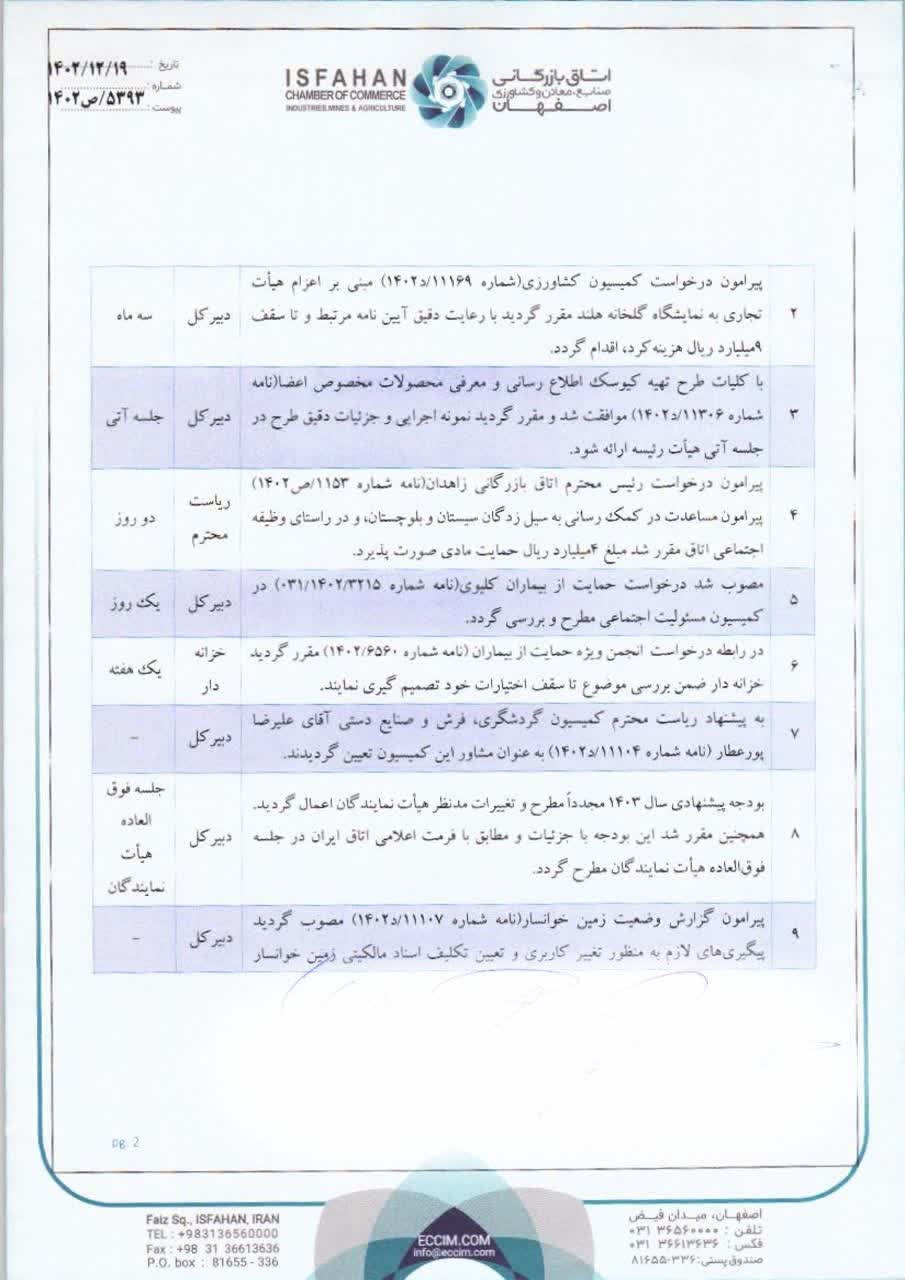 تاریخ : ۱۴۰۲/۱۲/۱۹
شماره : ۵۳۹۳/ص۱۴۰۲
پیوست :
ISFAHAN
CHAMBER OF COMMERCE
INDUSTRIES, MINES & AGRICULTURE
اتاق بازرگانی
صنایع، معادن و کشاورزی
اصفهان
۲
پیرامون درخواست کمیسیون کشاورزی(شماره ۱۱۱۶۹/د۱۴۰۲) مبنی بر اعزام هیأت
تجاری به نمایشگاه گلخانه هلند مقرر گردید با رعایت دقیق آیین نامه مرتبط و تا سقف
۹میلیارد ریال هزینه‌کرد، اقدام گردد.
دبیرکل
سه ماه
۳
با کلیات طرح تهیه کیوسک اطلاع رسانی و معرفی محصولات مخصوص اعضا(نامه
شماره ۱۱۳۰۶/د۱۴۰۲) موافقت شد و مقرر گردید نمونه اجرایی و جزئیات دقیق طرح در
جلسه آتی هیأت رئیسه ارائه شود.
دبیرکل
جلسه آتی
۴
پیرامون درخواست رئیس محترم اتاق بازرگانی زاهدان(نامه شماره ۱۱۵۳/ص۱۴۰۲)
پیرامون مساعدت در کمک رسانی به سیل زدگان سیستان و بلوچستان، و در راستای وظیفه
اجتماعی اتاق مقرر شد مبلغ ۴میلیارد ریال حمایت مادی صورت پذیرد.
ریاست
محترم
دو روز
۵
مصوب شد درخواست حمایت از بیماران کلیوی(نامه شماره ۰۳۱/۱۴۰۲/۳۲۱۵) در
کمیسیون مسئولیت اجتماعی مطرح و بررسی گردد.
دبیرکل
یک روز
۶
در رابطه درخواست انجمن ویژه حمایت از بیماران (نامه شماره ۱۴۰۲/۶۵۶۰) مقرر گردید
خزانه دار ضمن بررسی موضوع تا سقف اختیارات خود تصمیم گیری نمایند.
خزانه
دار
یک هفته
۷
به پیشنهاد ریاست محترم کمیسیون گردشگری، فرش و صنایع دستی آقای علیرضا
پورعطار (نامه شماره ۱۱۱۰۴/د۱۴۰۲) به عنوان مشاور این کمیسیون تعیین گردیدند.
دبیرکل
-
۸
بودجه پیشنهادی سال ۱۴۰۳ مجدداً مطرح و تغییرات مدنظر هیأت نمایندگان اعمال گردید.
همچنین مقرر شد این بودجه با جزئیات و مطابق با فرمت اعلامی اتاق ایران در جلسه
فوق‌العاده هیأت نمایندگان مطرح گردد.
دبیرکل
جلسه فوق
العاده
هیأت
نمایندگان
۹
پیرامون گزارش وضعیت زمین خوانسار(نامه شماره ۱۱۱۰۷/د۱۴۰۲) مصوب گردید
پیگیری‌های لازم به منظور تغییر کاربری و تعیین تکلیف اسناد مالکیتی زمین خوانسار
دبیرکل
-
pg. 2
Faiz Sq., ISFAHAN, IRAN
TEL : +983136560000
Fax : +98 31 36613636
P.O. box : 81655 - 336
ECCIM.COM
info@eccim.com
اصفهان، میدان فیض
تلفن : ۳۶۵۶۰۰۰۰ ۰۳۱
فکس : ۳۶۶۱۳۶۳۶ ۰۳۱
صندوق پستی: ۳۳۶-۸۱۶۵۵